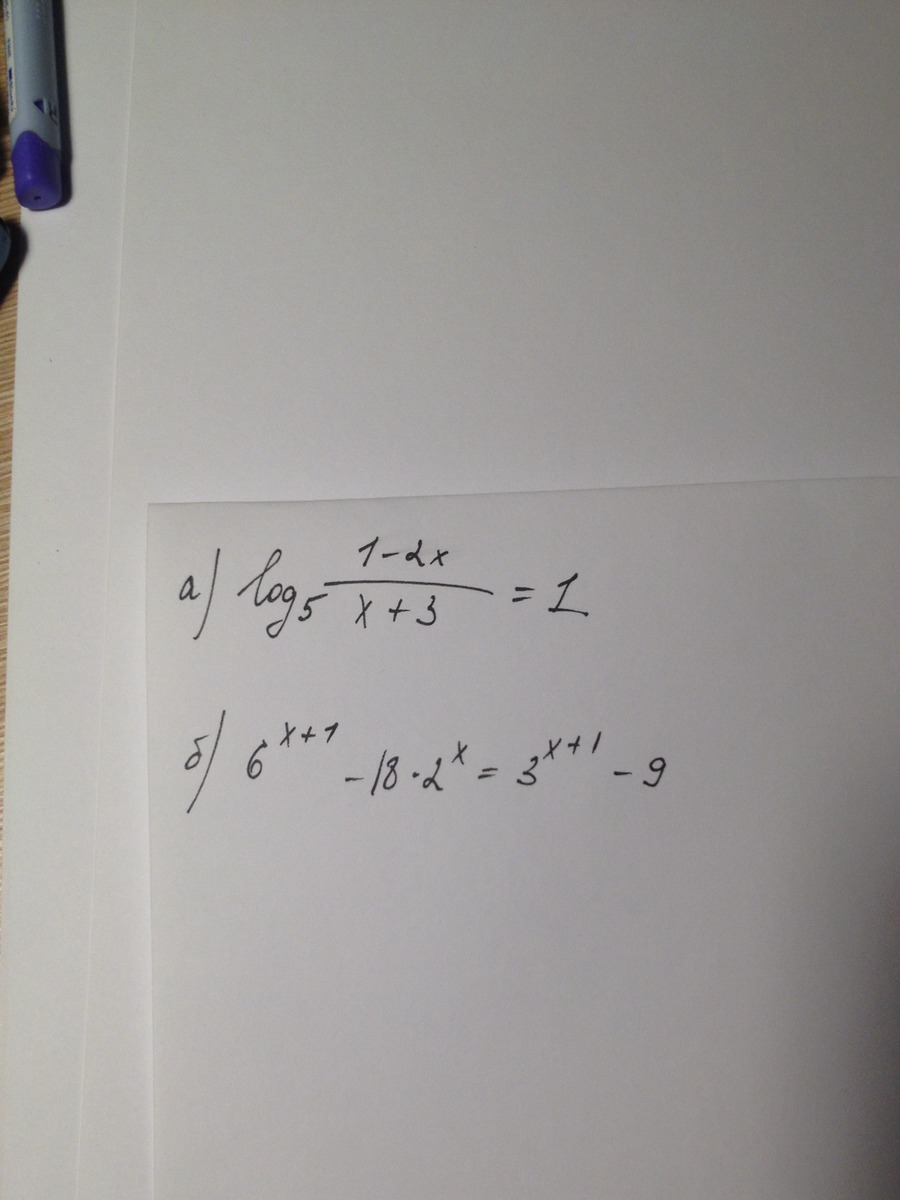 а) log₅ (1-2x)/(x+3) = 1
б) 6^(x+1) - 18 · 2^x = 3^(x+1) - 9